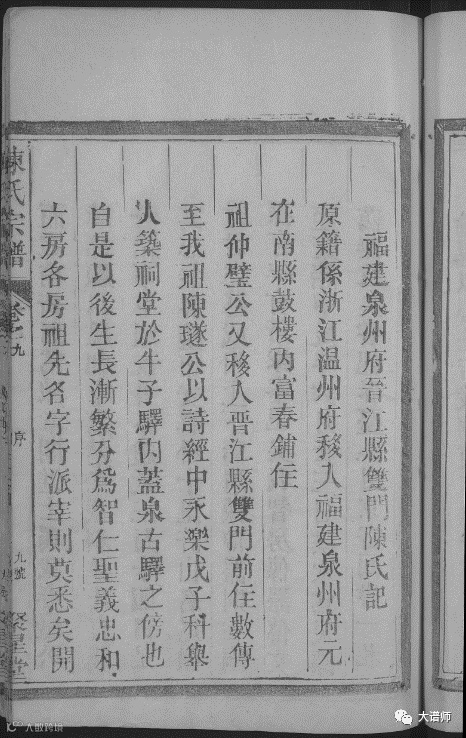 福建泉州府晉江縣雙門陳氏記
原籍係浙江温州府移入福建泉州府元
在南縣鼓樓內富春鋪住
祖仲璧公又移入晋江縣雙門前住數傳
至我祖陳璲公以詩經中永樂戊子科舉
人築祠堂於牛子驛內葢泉古驛之傍也
自是以後生長漸繁分為智仁聖義忠和
六房各房祖先名字行派宰則莫悉矣開
陳氏宗譜
卷
九
序
九號
聚星堂
大谱师